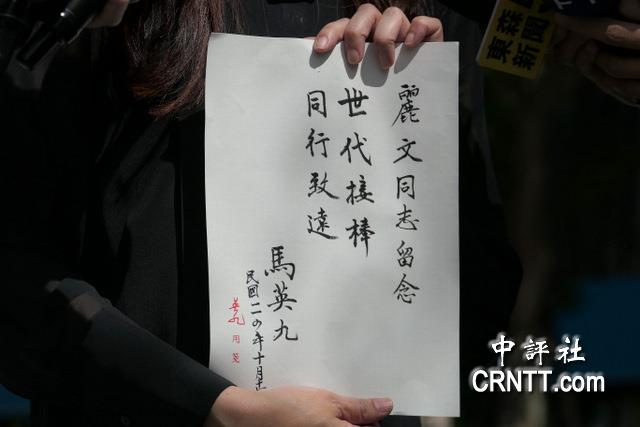 麗文同志留念
世代接棒
同行致遠
馬英九
民國一一四年十月
英九
用箋
東森
新
中評社
CRNTT.com